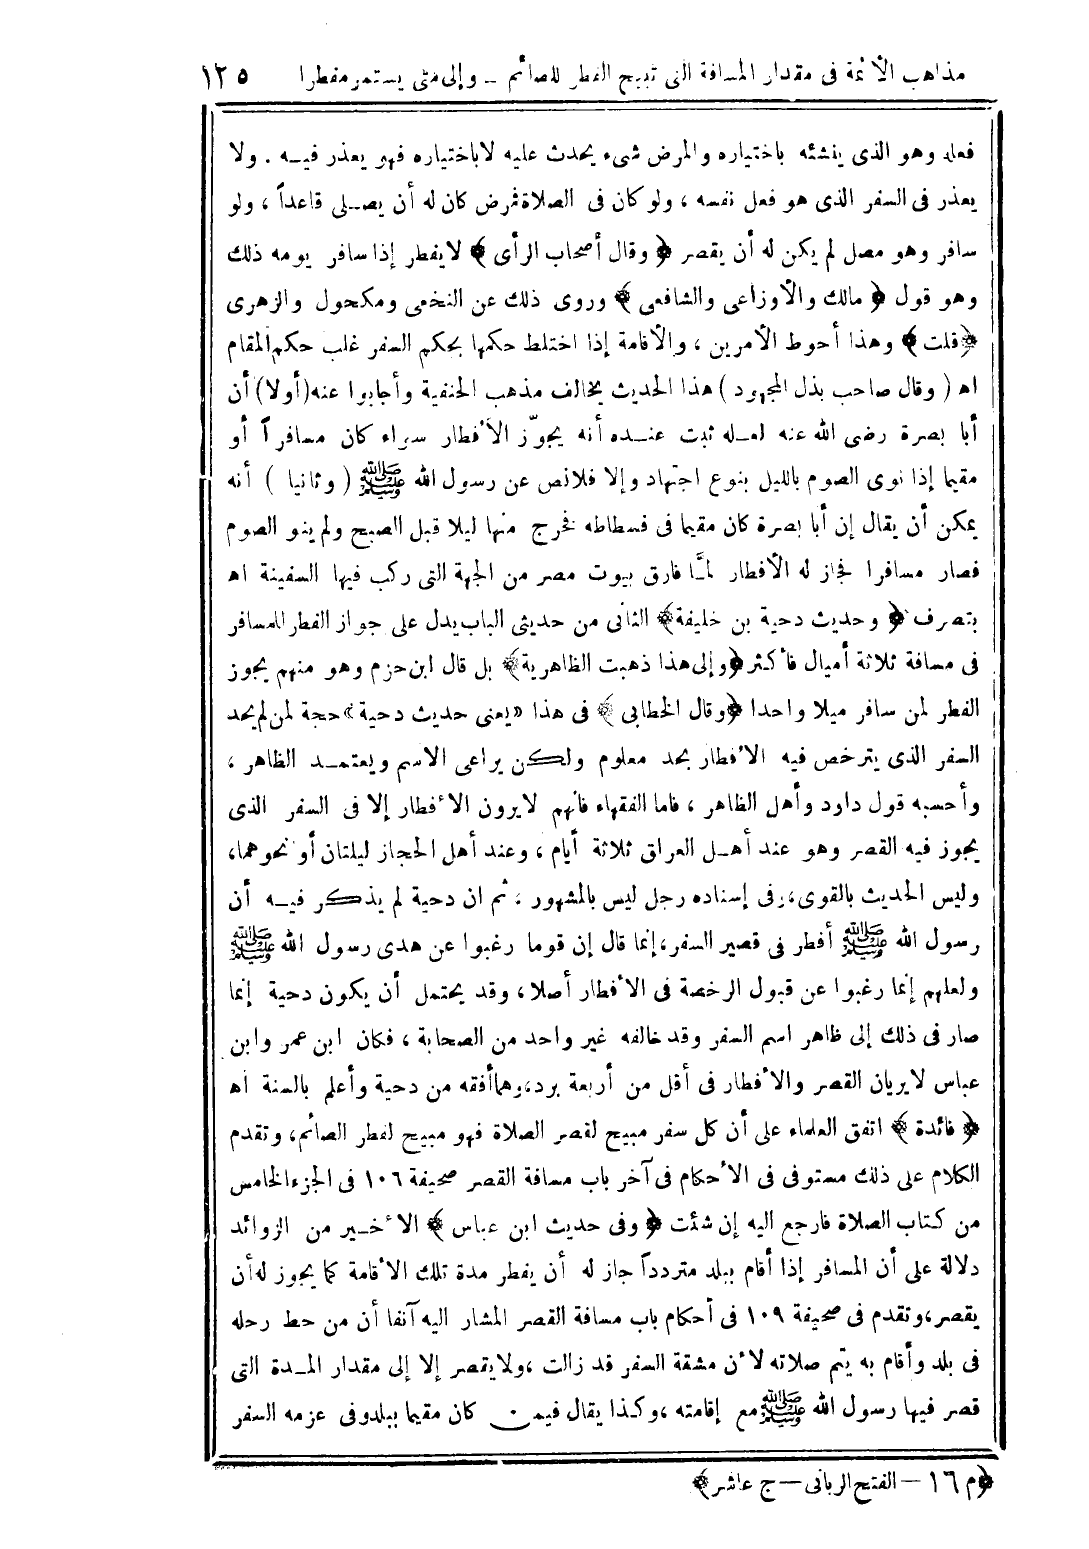 مذاهب الأئمة فى مقدار المسافة التى تبيح الفطر للصائم ــ وإلى متى يستمر مفطرا ١٢٥
فعله وهو الذى ينشئه باختياره والمرض شىء يحدث عليه لاباختياره فهو يعذر فيـه . ولا
يعذر فى السفر الذى هو فعل نفسه ، ولو كان فى الصلاة فمرض كان له أن يصـلى قاعداً ، ولو
سافر وهو مصل لم يكن له أن يقصر ﴿ وقال أصحاب الرأى ﴾ لايفطر إذا سافر يومه ذلك
وهو قول ﴿ مالك والأوزاعى والشافعى ﴾ وروى ذلك عن النخعى ومكحول والزهرى
﴿قلت﴾ وهذا أحوط الأمرين ، والأقامة إذا اختلط حكمها بحكم السفر غلب حكم المقام
اه ( وقال صاحب بذل المجهود ) هذا الحديث يخالف مذهب الحنفية وأجابوا عنه (أولا) أن
أبا بصرة رضى الله عنه لعـله ثبت عنـده أنه يجوّز الأفطار سواء كان مسافراً أو
مقيما إذا نوى الصوم بالليل بنوع اجتهاد وإلا فلانص عن رسول الله ﷺ ( وثانيا ) أنه
يمكن أن يقال إن أبا بصرة كان مقيما فى فسطاطه فخرج منها ليلا قبل الصبح ولم ينو الصوم
فصار مسافرا فجاز له الأفطار لمَّا فارق بيوت مصر من الجهة التى ركب فيها السفينة اه
بتصرف ﴿ وحديث دحية بن خليفة﴾ الثانى من حديثى الباب يدل على جواز الفطر للمسافر
فى مسافة ثلاثة أميال فأكثر ﴿وإلى هذا ذهبت الظاهرية﴾ بل قال ابن حزم وهو منهم يجوز
الفطر لمن سافر ميلا واحدا ﴿وقال الخطابى ﴾ فى هذا «يعنى حديث دحية» حجة لمن لم يحد
السفر الذى يترخص فيه الأفطار بحد معلوم ولكن يراعى الاسم ويعتمـد الظاهر ،
وأحسبه قول داود وأهل الظاهر ، فاما الفقهاء فانهم لايرون الأفطار إلا فى السفر الذى
يجوز فيه القصر وهو عند أهـل العراق ثلاثة أيام ، وعند أهل الحجاز ليلتان أو نحوهما،
وليس الحديث بالقوى، وفى إسناده رجل ليس بالمشهور ، ثم ان دحية لم يذكر فيـه أن
رسول الله ﷺ أفطر فى قصير السفر، إنما قال إن قوما رغبوا عن هدى رسول الله ﷺ
ولعلهم إنما رغبوا عن قبول الرخصة فى الأفطار أصلا ، وقد يحتمل أن يكون دحية إنما
صار فى ذلك إلى ظاهر اسم السفر وقد خالفه غير واحد من الصحابة ، فكان ابن عمر وابن
عباس لايريان القصر والأفطار فى أقل من أربعة برد، وهما أفقه من دحية وأعلم بالسنة اه
﴿ فائدة ﴾ اتفق العلماء على أن كل سفر مبيح لقصر الصلاة فهو مبيح لفطر الصائم، وتقدم
الكلام على ذلك مستوفى فى الأحكام فى آخر باب مسافة القصر صحيفة ١٠٦ فى الجزء الخامس
من كتاب الصلاة فارجع اليه إن شئت ﴿ وفى حديث ابن عباس ﴾ الأخـير من الزوائد
دلالة على أن المسافر إذا أقام ببلد متردداً جاز له أن يفطر مدة تلك الأقامة كما يجوز له أن
يقصر، وتقدم فى صحيفة ١٠٩ فى أحكام باب مسافة القصر المشار اليه آنفا أن من حط رحله
فى بلد وأقام به يتم صلاته لأن مشقة السفر قد زالت ، ولايقصر إلا إلى مقدار المـدة التى
قصر فيها رسول الله ﷺ مع إقامته ، وكذا يقال فيمن كان مقيما ببلدوفى عزمه السفر
﴿م ١٦ – الفتح الربانى – ج عاشر﴾